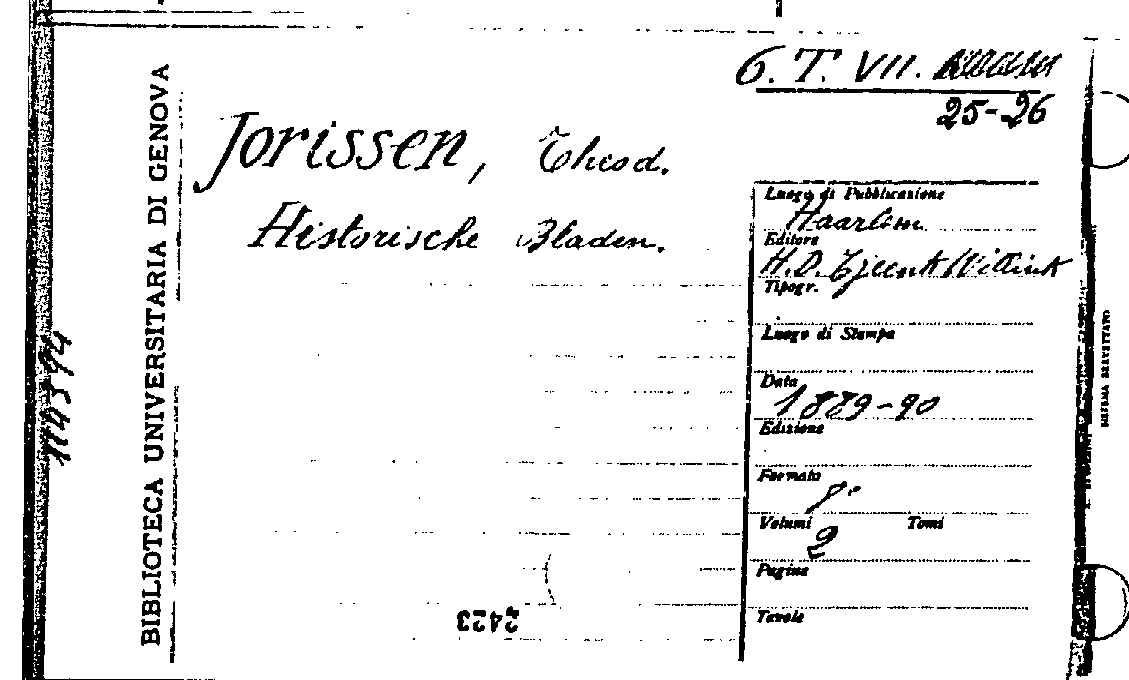 6. T. VII.
25-26
BIBLIOTECA UNIVERSITARIA DI GENOVA
Jorissen, Theod.
Historische Bladen.
Luogo di Pubblicazione
Haarlem
Editore
H. D. Tjeenk Willink
Tipogr.
Luogo di Stampa
Data
1889-90
Edizione
Formato
8°
Volumi Tomi
2
Pagine
Tavole
2423